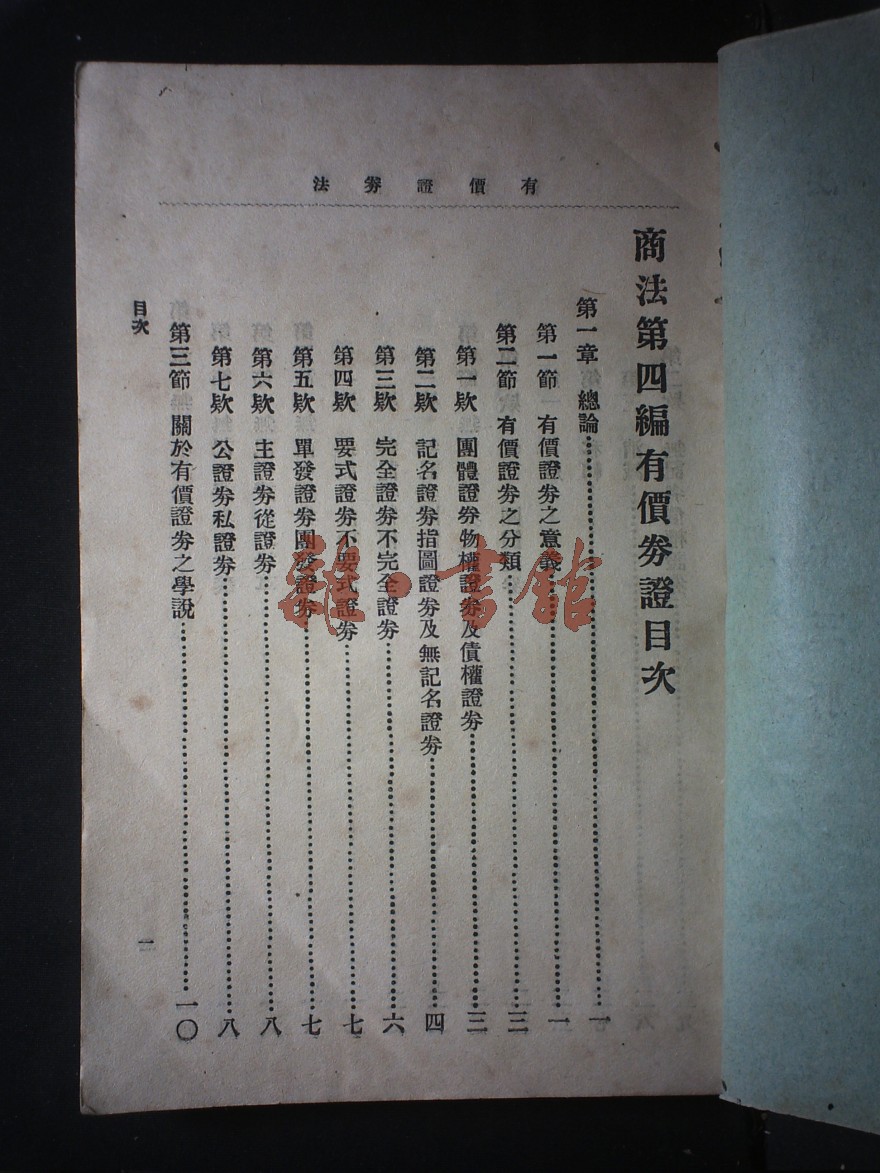 有價證劵法
商法第四編有價劵證目次
第一章 總論…………一
第一節 有價證劵之意義…………一
第二節 有價證劵之分類…………三
第一欵 團體證劵物權證劵及債權證劵…………三
第二欵 記名證劵指圖證劵及無記名證劵…………四
第三欵 完全證劵不完全證劵…………六
第四欵 要式證劵不要式證劵…………七
第五欵 單發證劵團發證劵…………七
第六欵 主證劵從證劵…………八
第七欵 公證劵私證劵…………八
第三節 關於有價證劵之學說…………一〇
目次
一
雜·書館